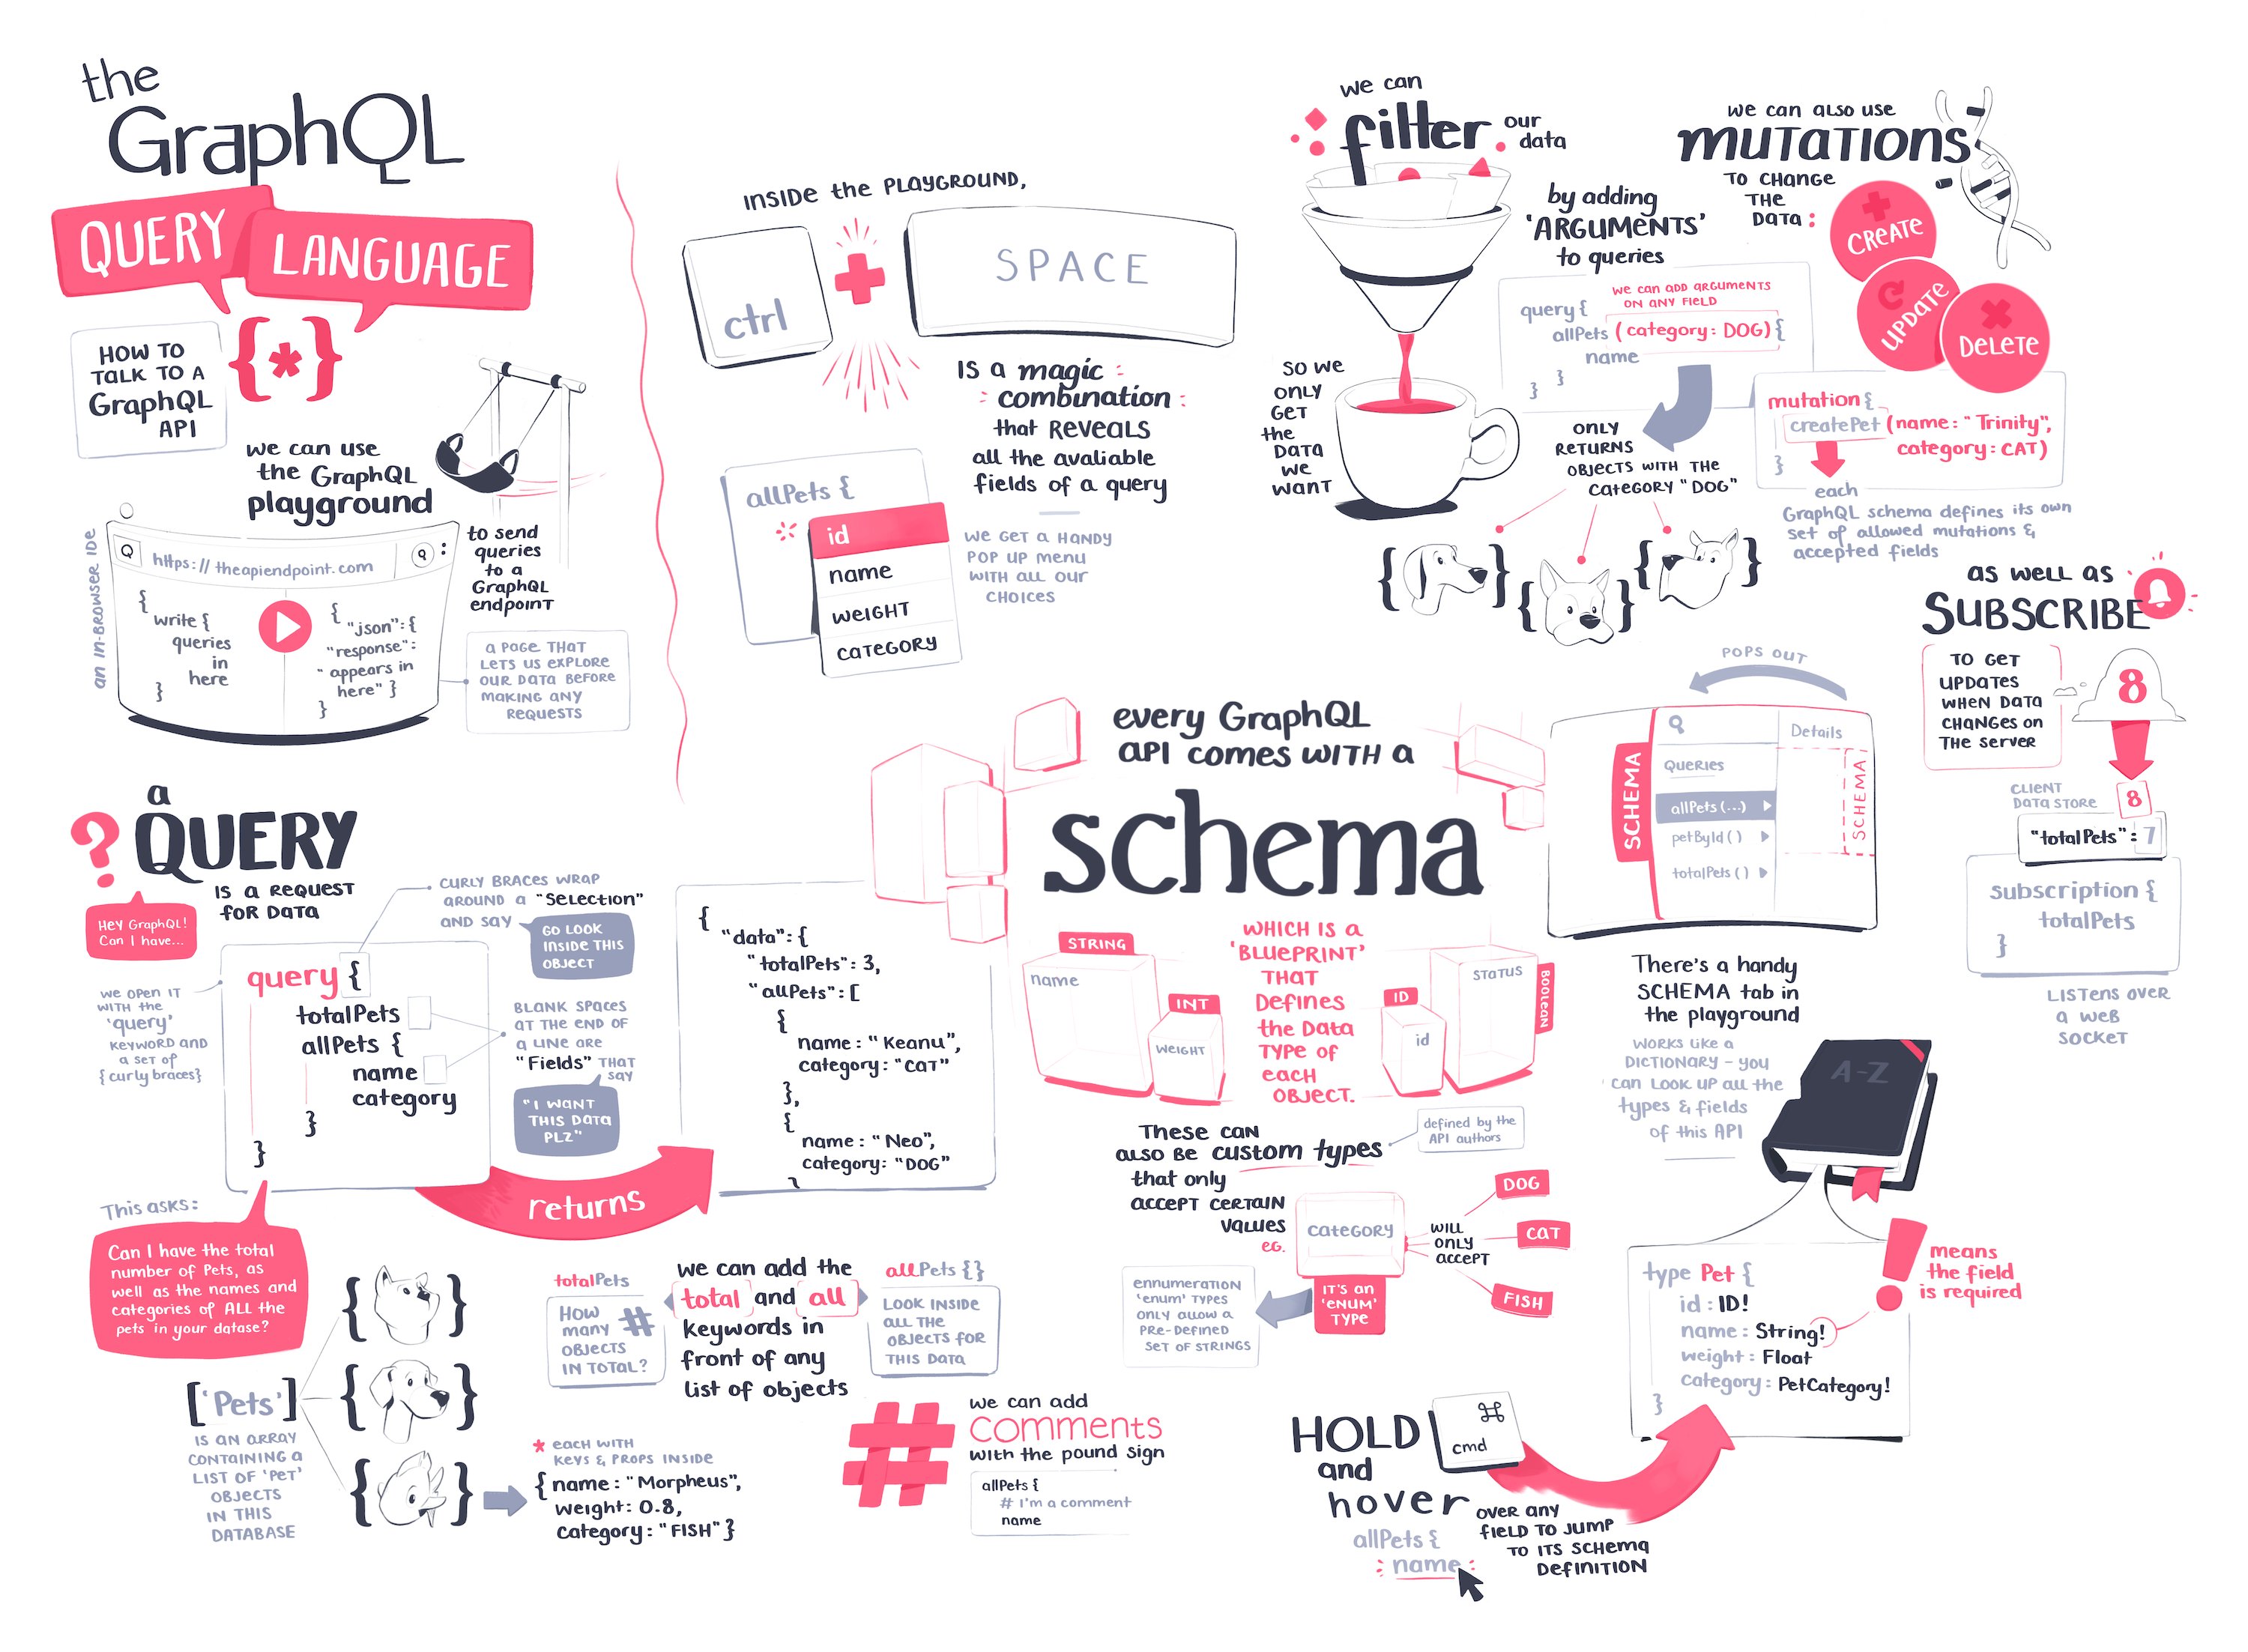 the
GraphQL
QUERY
LANGUAGE
{*}
HOW TO
TALK TO A
GraphQL
API
we can use
the GraphQL
playground
to send
queries
to a
GraphQL
endpoint
an in-browser IDE
https://theapiendpoint.com
{
write {
queries
in
here
}
{
"json": {
"response":
"appears in
here" }
}
a page that
lets us explore
our data before
making any
requests
INSIDE the PLAYGROUND,
ctrl
+
SPACE
IS a magic
combination
that REVEALS
all the avaliable
fields of a query
we get a handy
pop up menu
with all our
choices
allPets {
id
name
weight
category
we can
filter
our
data
by adding
'ARGUMENTS'
to queries
we can add arguments
on any field
query {
allPets (category: DOG) {
name
}
}
so we
only
get
the
data
we
want
only
returns
objects with the
category "DOG"
{ }
{ }
{ }
we can also use
mutations
to change
the
data:
CREATE
UPDATE
DELETE
mutation {
createPet (name: "Trinity",
category: CAT)
}
each
GraphQL schema defines its own
set of allowed mutations &
accepted fields
as well as
SUBSCRIBE
to get
updates
when data
changes on
the server
8
client
data store
8
"totalPets": 7
subscription {
totalPets
}
listens over
a web
socket
?
a
QUERY
is a request
for data
Hey GraphQL!
Can I have...
we open it
with the
'query'
keyword and
a set of
{curly braces}
query {
totalPets
allPets {
name
category
}
}
curly braces wrap
around a "Selection"
and say
go look
inside this
object
blank spaces
at the end of
a line are
"Fields" that
say
"I want
this data
plz"
returns
{
"data": {
"totalPets": 3,
"allPets": [
{
name: "Keanu",
category: "CAT"
},
{
name: "Neo",
category: "DOG"
}
This asks:
Can I have the total
number of Pets, as
well as the names and
categories of ALL the
pets in your datase?
['Pets']
is an array
containing a
list of 'Pet'
objects
in this
database
{ }
{ }
{ }
* each with
keys & props inside
{ name: "Morpheus",
weight: 0.8,
category: "FISH" }
totalPets
How
many #
objects
in total?
we can add the
total and all
keywords in
front of any
list of objects
allPets {}
look inside
all the
objects for
this data
#
we can add
comments
with the pound sign
allPets {
# I'm a comment
name
every GraphQL
API comes with a
schema
which is a
'blueprint'
that
defines
the data
type of
each
object.
STRING
name
INT
weight
ID
id
BOOLEAN
status
These can
also be custom types
that only
accept certain
values
eg.
defined by the
API authors
category
will
only
accept
DOG
CAT
FISH
it's an
'enum'
type
ennumeration
'enum' types
only allow a
pre-defined
set of strings
pops out
SCHEMA
Queries
allPets(...)
petById()
totalPets()
Details
SCHEMA
There's a handy
SCHEMA tab in
the playground
works like a
dictionary - you
can look up all the
types & fields
of this API
A-Z
type Pet {
id: ID!
name: String!
weight: Float
category: PetCategory!
}
!
means
the field
is required
HOLD
and
hover
⌘
cmd
over any
field to jump
to its schema
definition
allPets {
name